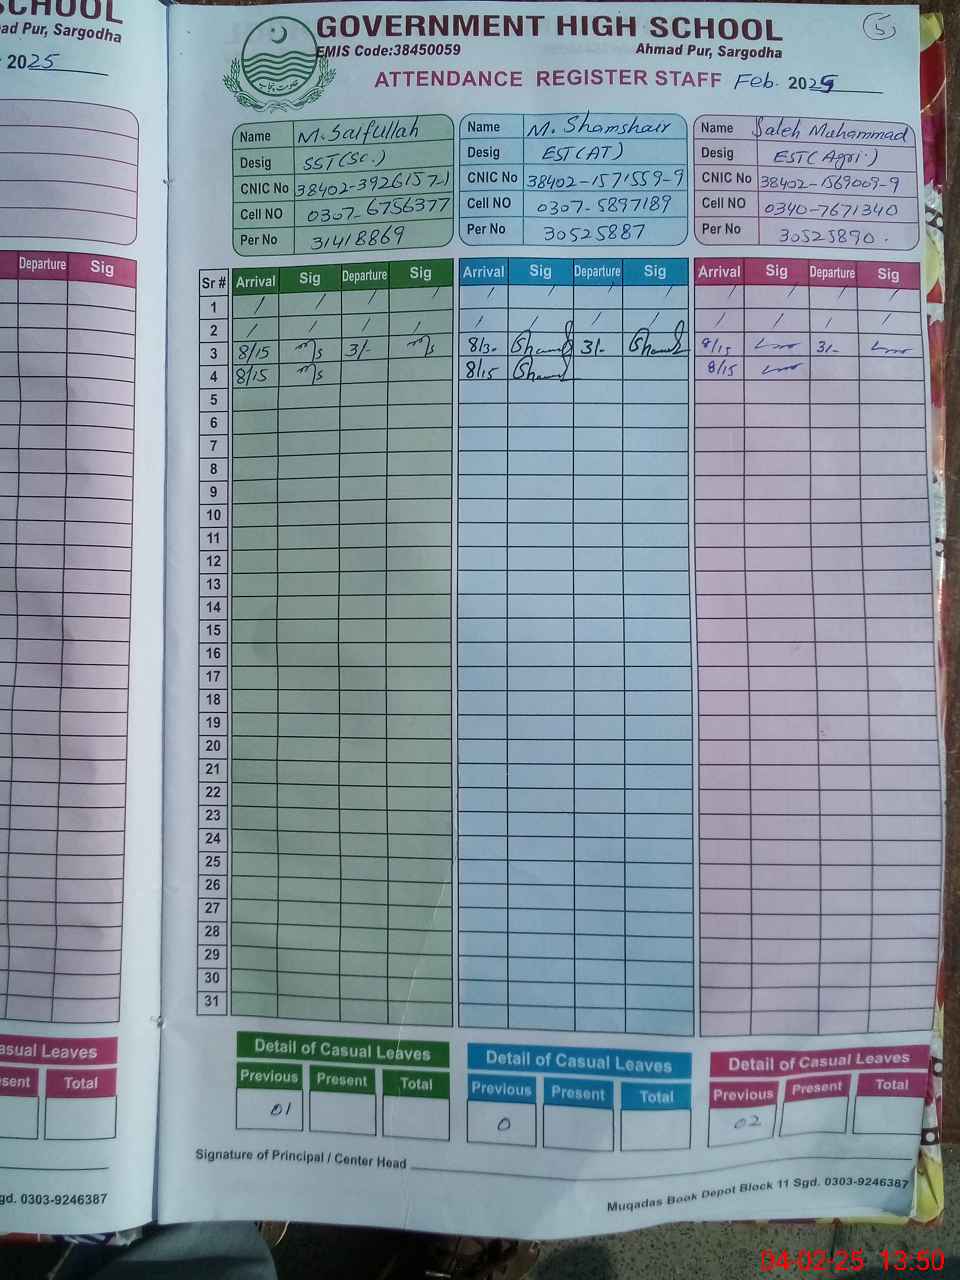 SCHOOL
ad Pur, Sargodha
2025
Departure Sig
asual Leaves
sent Total
gd. 0303-9246387
5
GOVERNMENT HIGH SCHOOL
EMIS Code:38450059 Ahmad Pur, Sargodha
ATTENDANCE REGISTER STAFF Feb. 2025
Name M. Saifullah
Desig SST(Sc.)
CNIC No 38402-3926157-1
Cell NO 0307-6756377
Per No 31418869
Name M. Shamshair
Desig EST(AT)
CNIC No 38402-1571559-9
Cell NO 0307-5897189
Per No 30525887
Name Saleh Muhammad
Desig EST(Agri.)
CNIC No 38402-1569009-9
Cell NO 0340-7671340
Per No 30525890.
Sr # Arrival Sig Departure Sig Arrival Sig Departure Sig Arrival Sig Departure Sig
1 / / / / / / / / / / / /
2 / / / / / / / / / / / /
3 8/15 Ms 3/- Ms 8/30 Sham 3/- Sham 8/15 3/-
4 8/15 Ms 8/15 Sham 8/15
5
6
7
8
9
10
11
12
13
14
15
16
17
18
19
20
21
22
23
24
25
26
27
28
29
30
31
Detail of Casual Leaves
Previous Present Total
01
Detail of Casual Leaves
Previous Present Total
0
Detail of Casual Leaves
Previous Present Total
02
Signature of Principal / Center Head
Muqadas Book Depot Block 11 Sgd. 0303-9246387
04-02-25 13:50